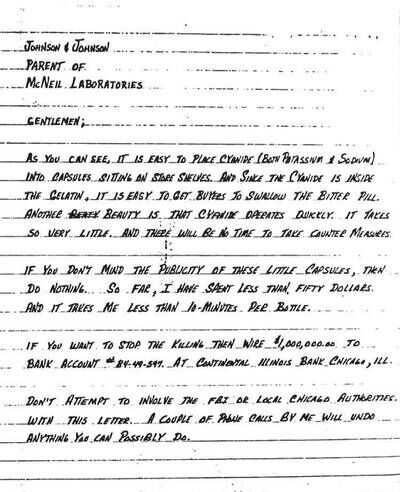 JOHNSON & JOHNSON
PARENT OF
MCNEIL LABORATORIES
GENTLEMEN;
AS YOU CAN SEE, IT IS EASY TO PLACE CYANIDE (BOTH POTASSIUM & SODIUM)
INTO CAPSULES SITTING ON STORE SHELVES. AND SINCE THE CYANIDE IS INSIDE
THE GELATIN, IT IS EASY TO GET BUYERS TO SWALLOW THE BITTER PILL.
ANOTHER BEAUTY IS THAT CYANIDE OPERATES QUICKLY. IT TAKES
SO VERY LITTLE. AND THERE WILL BE NO TIME TO TAKE COUNTER MEASURES.
IF YOU DON'T MIND THE PUBLICITY OF THESE LITTLE CAPSULES, THEN
DO NOTHING. SO FAR, I HAVE SPENT LESS THAN FIFTY DOLLARS.
AND IT TAKES ME LESS THAN 10-MINUTES PER BOTTLE.
IF YOU WANT TO STOP THE KILLING THEN WIRE $1,000,000.00 TO
BANK ACCOUNT # 84-49-597 AT CONTINENTAL ILLINOIS BANK CHICAGO, ILL.
DON'T ATTEMPT TO INVOLVE THE FBI OR LOCAL CHICAGO AUTHORITIES
WITH THIS LETTER. A COUPLE OF PHONE CALLS BY ME WILL UNDO
ANYTHING YOU CAN POSSIBLY DO.